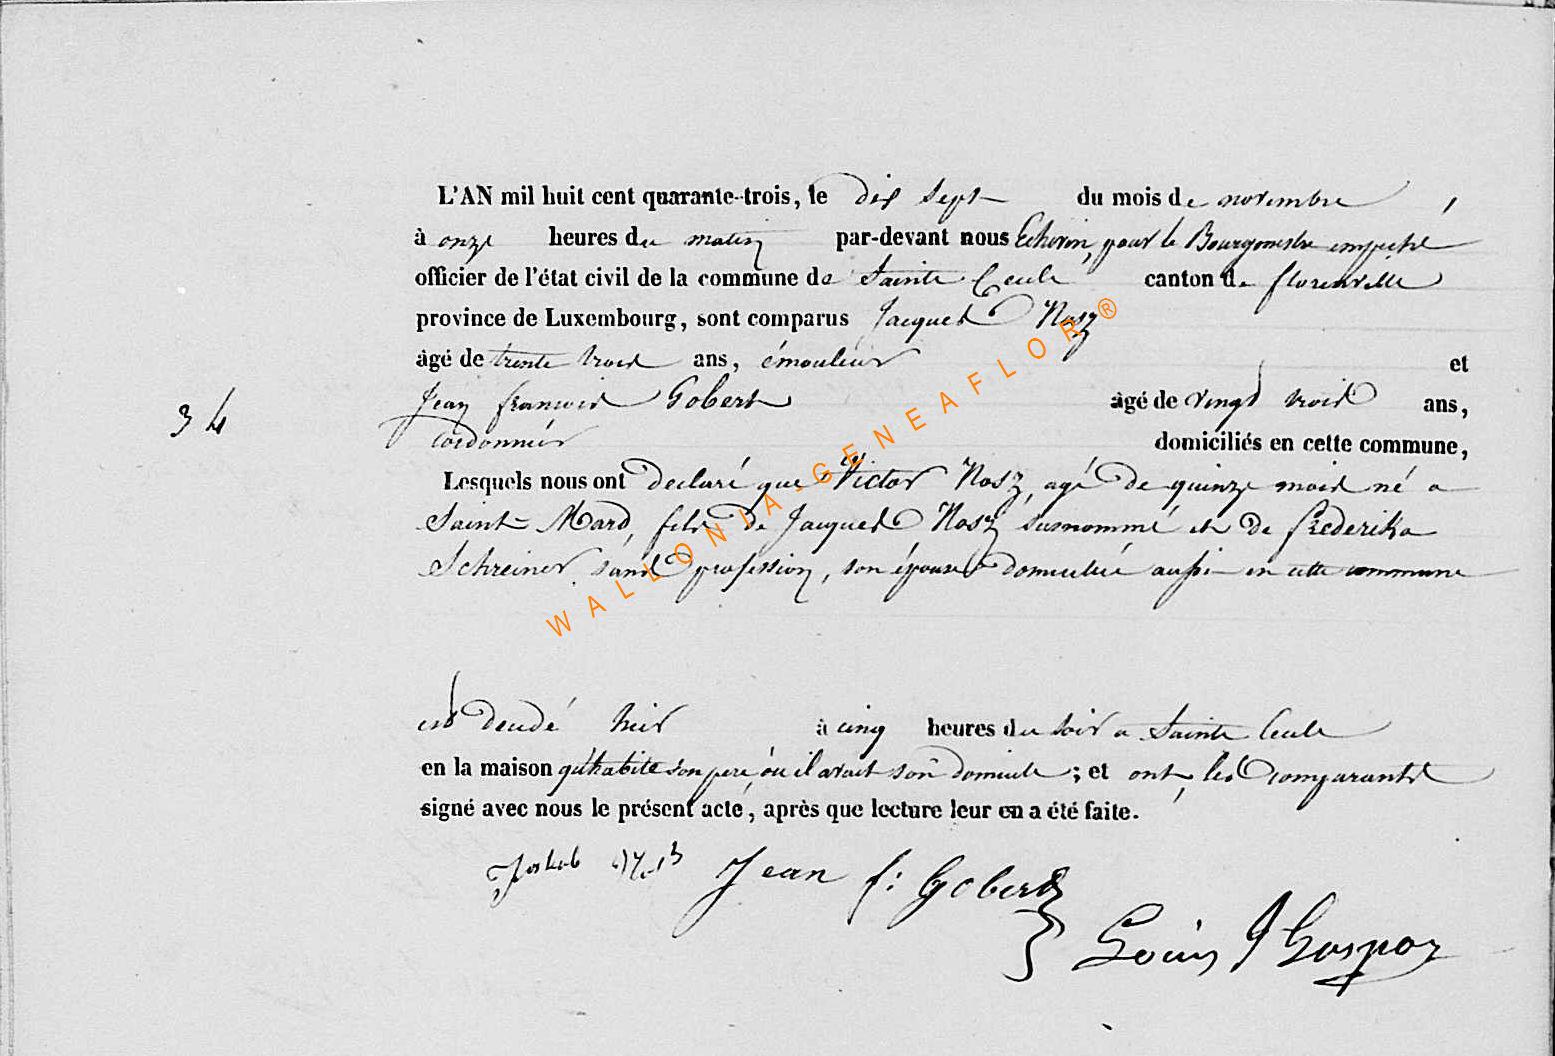 L'AN mil huit cent quarante-trois, le dix sept du mois de novembre,
à onze heures du matin par-devant nous Echevin, pour le Bourgmestre empeché
officier de l'état civil de la commune de Sainte Cecile canton de florenville
province de Luxembourg, sont comparus Jacques Nosz
âgé de trente trois ans, émouleur et
Jean francois Gobert âgé de vingt trois ans,
34
cordonnier domiciliés en cette commune,
Lesquels nous ont declaré que Victor Nosz, agé de quinze mois né a
Saint-Mard, fils de Jacques Nosz surnommé et de frederika
Schreiner, sans profession, son épouse domiciliée aussi en cette commune
est decedé hier à cinq heures du soir a Sainte Cecile
en la maison qu'habite son pere, où il avait son domicile ; et ont, les comparants
signé avec nous le présent acte, après que lecture leur en a été faite.
Jean f: Gobert
Louis J Gaspar
WALLONIA-GENEAFLOR®